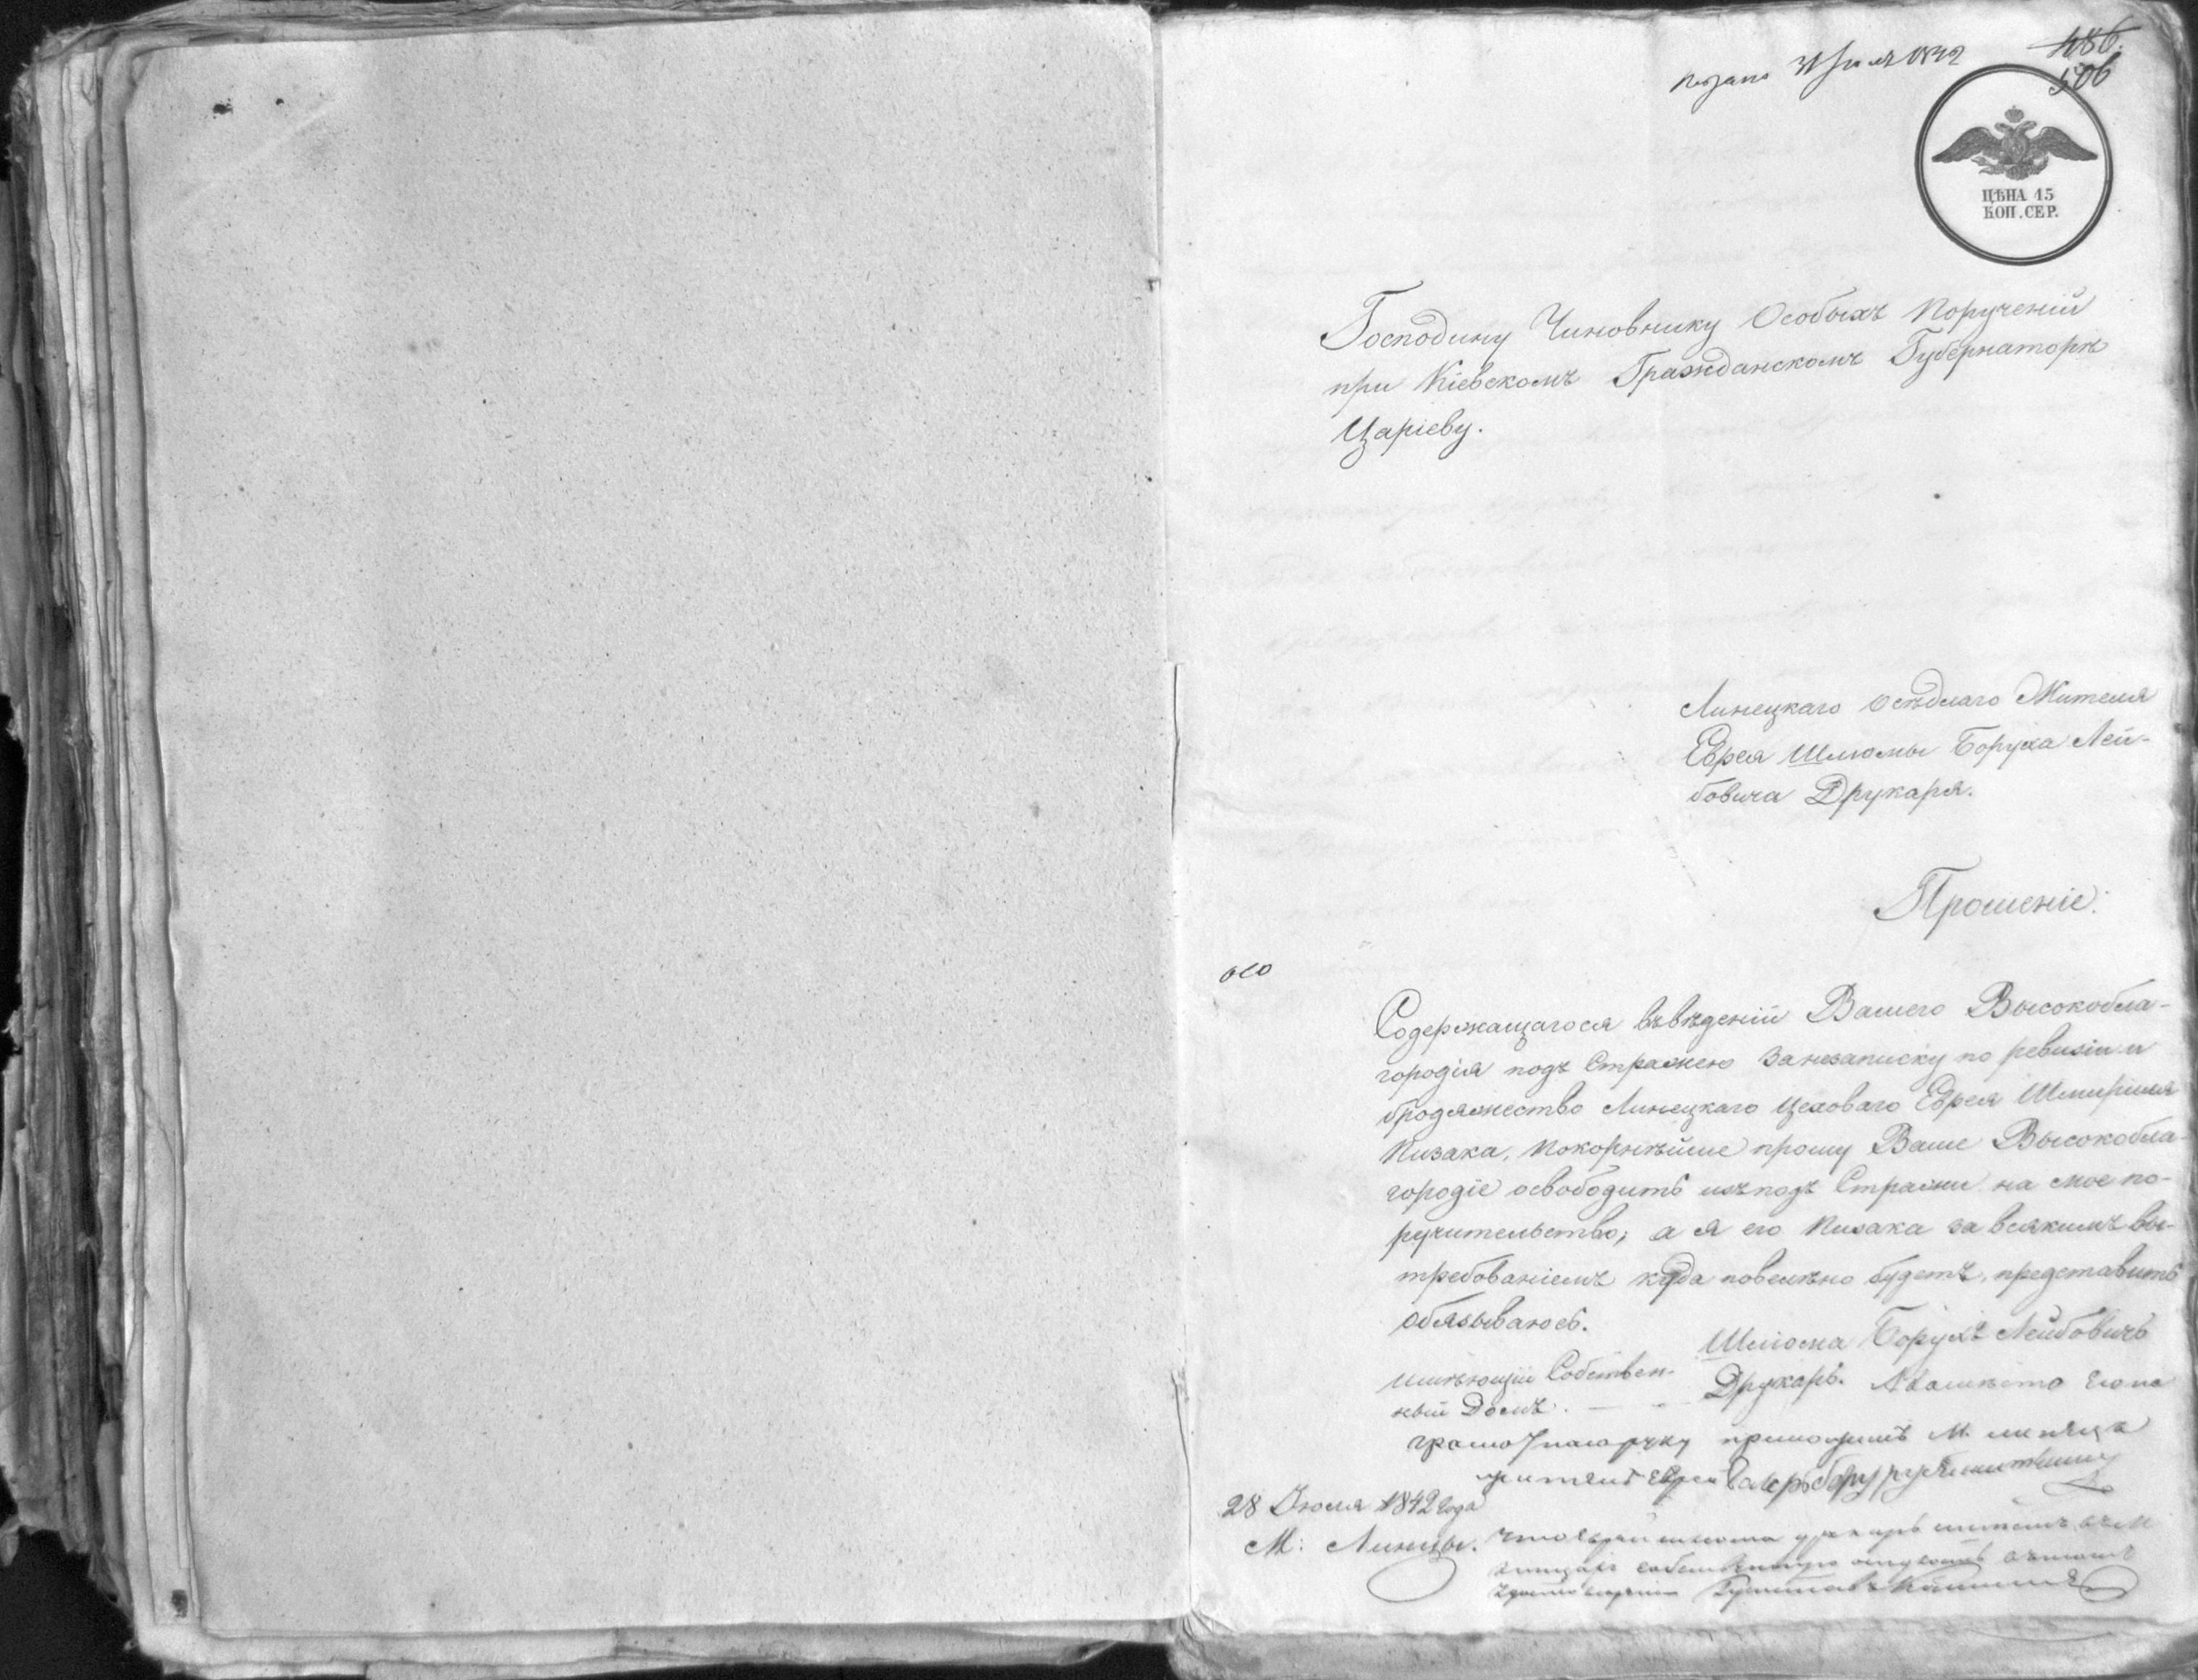 подано 31 Июля 1842
486.
506
ЦѢНА 15
КОП. СЕР.
Господину Чиновнику Особыхъ Порученій
при Кіевскомъ Гражданскомъ Губернаторѣ
Царіеву.
Линецкаго Осѣдлаго Жителя
Еврея Шлиомы Боруха Лей-
бовича Друкаря.
Прошеніе.
Содержащагося въвѣденіи Вашего Высокобла-
городія подъ Стражею Занезаписку по ревизіи и
бродяжество Линецкаго Цеховаго Еврея
Пизака, Покорнѣйше прошу Ваше Высокобла-
городіе освободить изъподъ Стражи на мое по-
ручительство; а я его Пизака за всякимъ вы-
требованіемъ куда повелѣно будетъ, представить
обязываюсь.
Шлиома Борухъ Лейбовичъ
Имѣющій Собствен-
Друкарь. Авмѣсто его не
ный Домъ.
28 Июля 1842 года
М: Линцы.